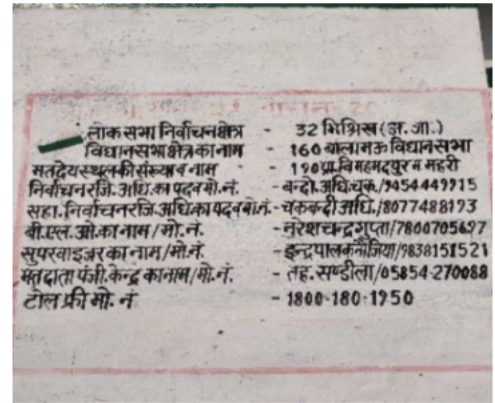 लोक सभा निर्वाचन क्षेत्र - 32 मिश्रिख (अ. जा.)
विधानसभा क्षेत्र का नाम - 160 बालामऊ विधानसभा
मतदेय स्थल की संख्या व नाम - 190 प्रा. वि. महमदपुर म. महरी
निर्वाचन रजि. अधि. का पद व मो. नं. - बन्दो. अधि. चक. /9454449915
सहा. निर्वाचन रजि. अधि. का पद व मो. नं. - चकबन्दी अधि. /8077488193
बी. एल. ओ. का नाम / मो. नं. - नरेश चन्द्र गुप्ता /7800705697
सुपरवाइजर का नाम / मो. नं. - इन्द्रपाल कनौजिया /9838151521
मतदाता पंजी. केन्द्र का नाम / मो. नं. - तह. सण्डीला /05854-270088
टोल फ्री मो. नं - 1800-180-1950